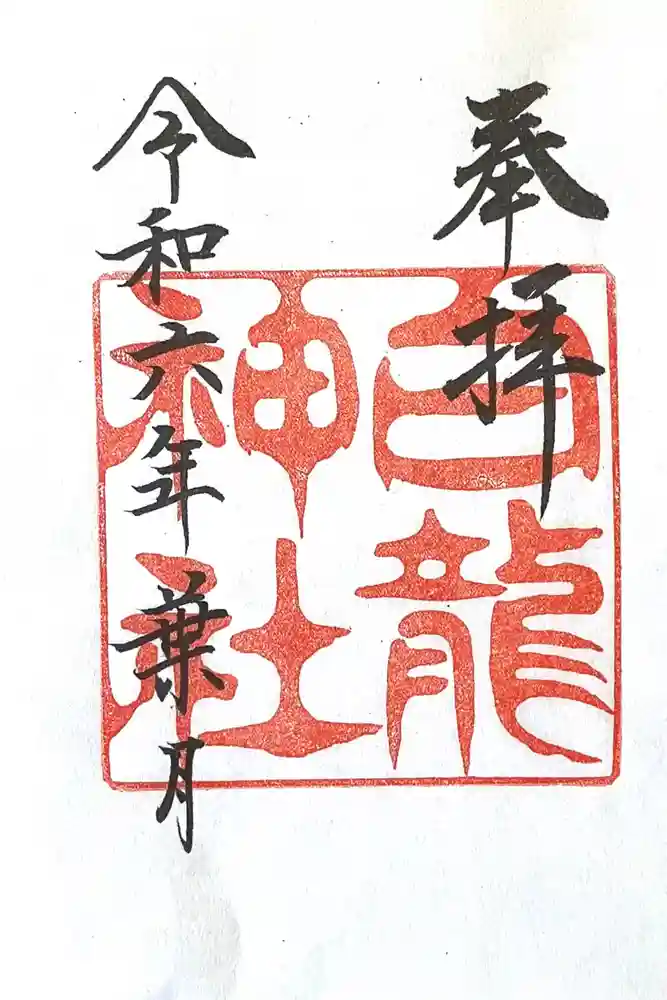 奉拝
白龍
神社
令和六年葉月